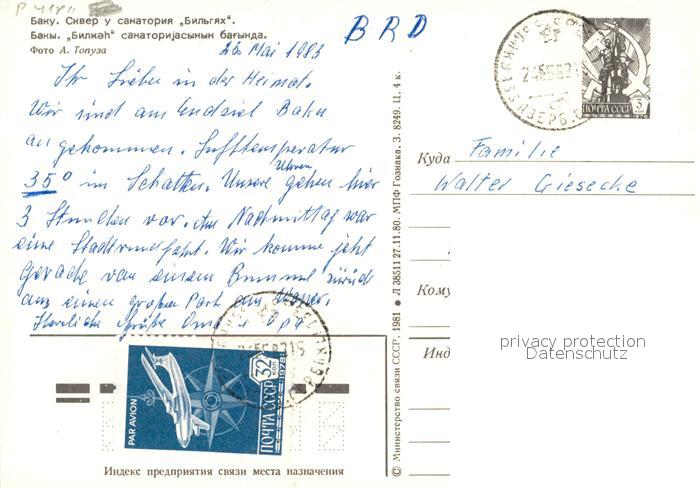 Баку. Сквер у санатория „Бильгях“.
Бакы. „Билҝәһ“ санаторијасынын бағында.
Фото А. Топуза
BRD
23. Mai 1983
Ihr Lieben in der Heimat.
Wir sind am Endziel Baku
angekommen. Lufttemperatur
35° im Schatten. Unsere Uhren gehen hier
3 Stunden vor. Am Nachmittag war
eine Stadtrundfahrt. Wir komme jetzt
gerade von einem Bummel zurück
aus einen großen Park am Wasser.
Herzliche Grüße Oma + Opa
ПОЧТА СССР
3 коп
1976
Куда
Familie
Walter Giesecke
Кому
Инд
privacy protection
Datenschutz
PAR AVION
ПОЧТА СССР 1978
32 коп
Индекс предприятия связи места назначения
© Министерство связи СССР, 1981 ● Л 38511 27.11.80. МПФ Гознака. З. 8249. Ц. 4 к.